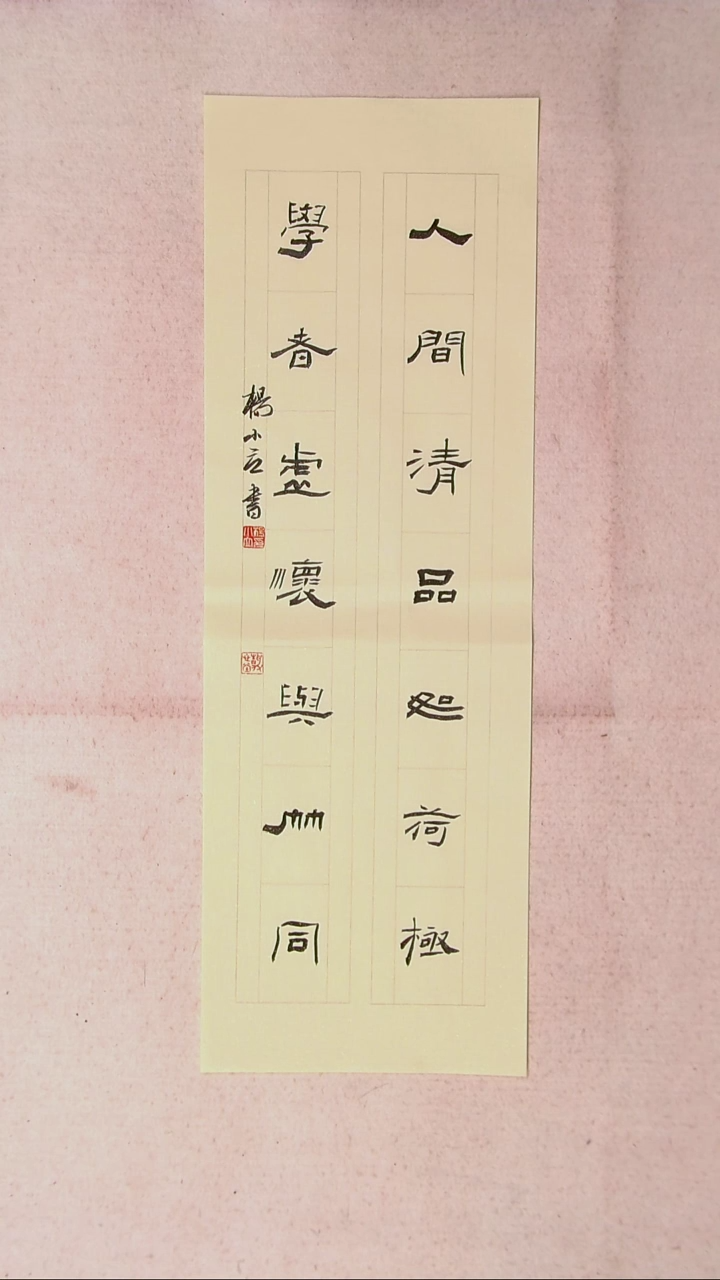 人間清品如荷極
學者虛懷與竹同
楊小立書